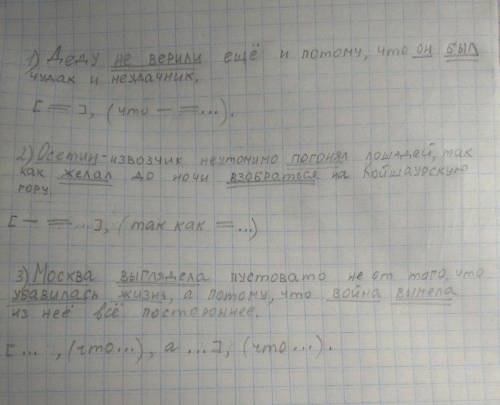 1) Деду не верили ещё и потому, что он был
чудак и неудачник.
[ = ], (что – =...).
2) Осетин-извозчик неутомимо погонял лошадей, так
как желал до ночи взобраться на Койшаурскую
гору.
[ – =...], (так как =...)
3) Москва выглядела пустовато не от того, что
убавилась жизнь, а потому, что война вымела
из неё всё постороннее.
[... ,(что...), а ...], (что...).